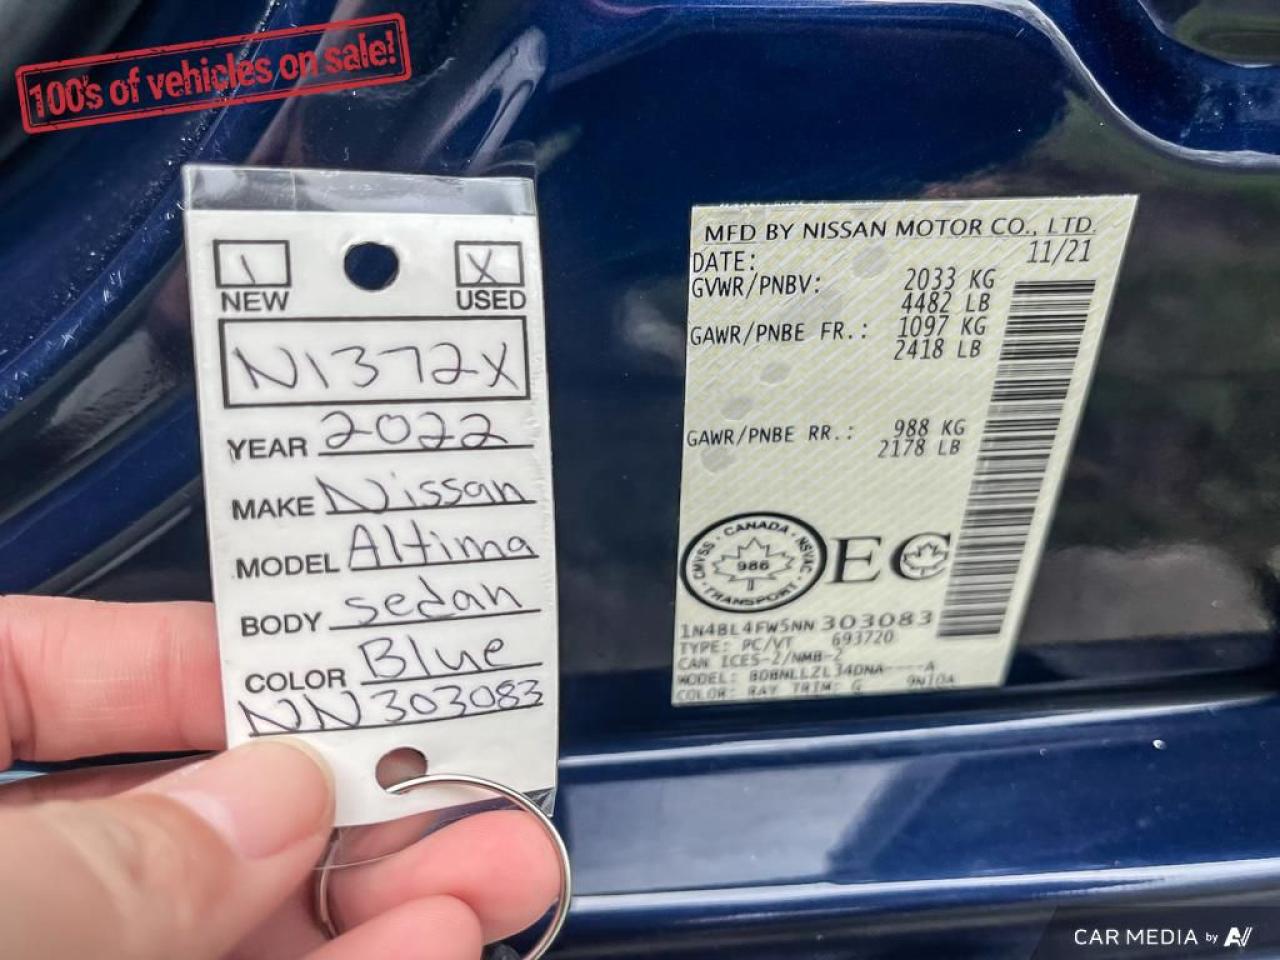 100's of vehicles on sale!
\ X
NEW USED
N1372X
YEAR 2022
MAKE Nissan
MODEL Altima
BODY sedan
COLOR Blue
NN303083
MFD BY NISSAN MOTOR CO., LTD.
DATE: 11/21
GVWR/PNBV: 2033 KG
4482 LB
GAWR/PNBE FR.: 1097 KG
2418 LB
GAWR/PNBE RR.: 988 KG
2178 LB
CANADA
CMVSS NSVAC
986
TRANSPORT
EC
1N4BL4FW5NN303083
TYPE: PC/VT 693720
CAN ICES-2/NMB-2
MODEL: BDBNLLZL34DNA----A
COLOR: RAY TRIM: G 9N10A
CAR MEDIA by AV